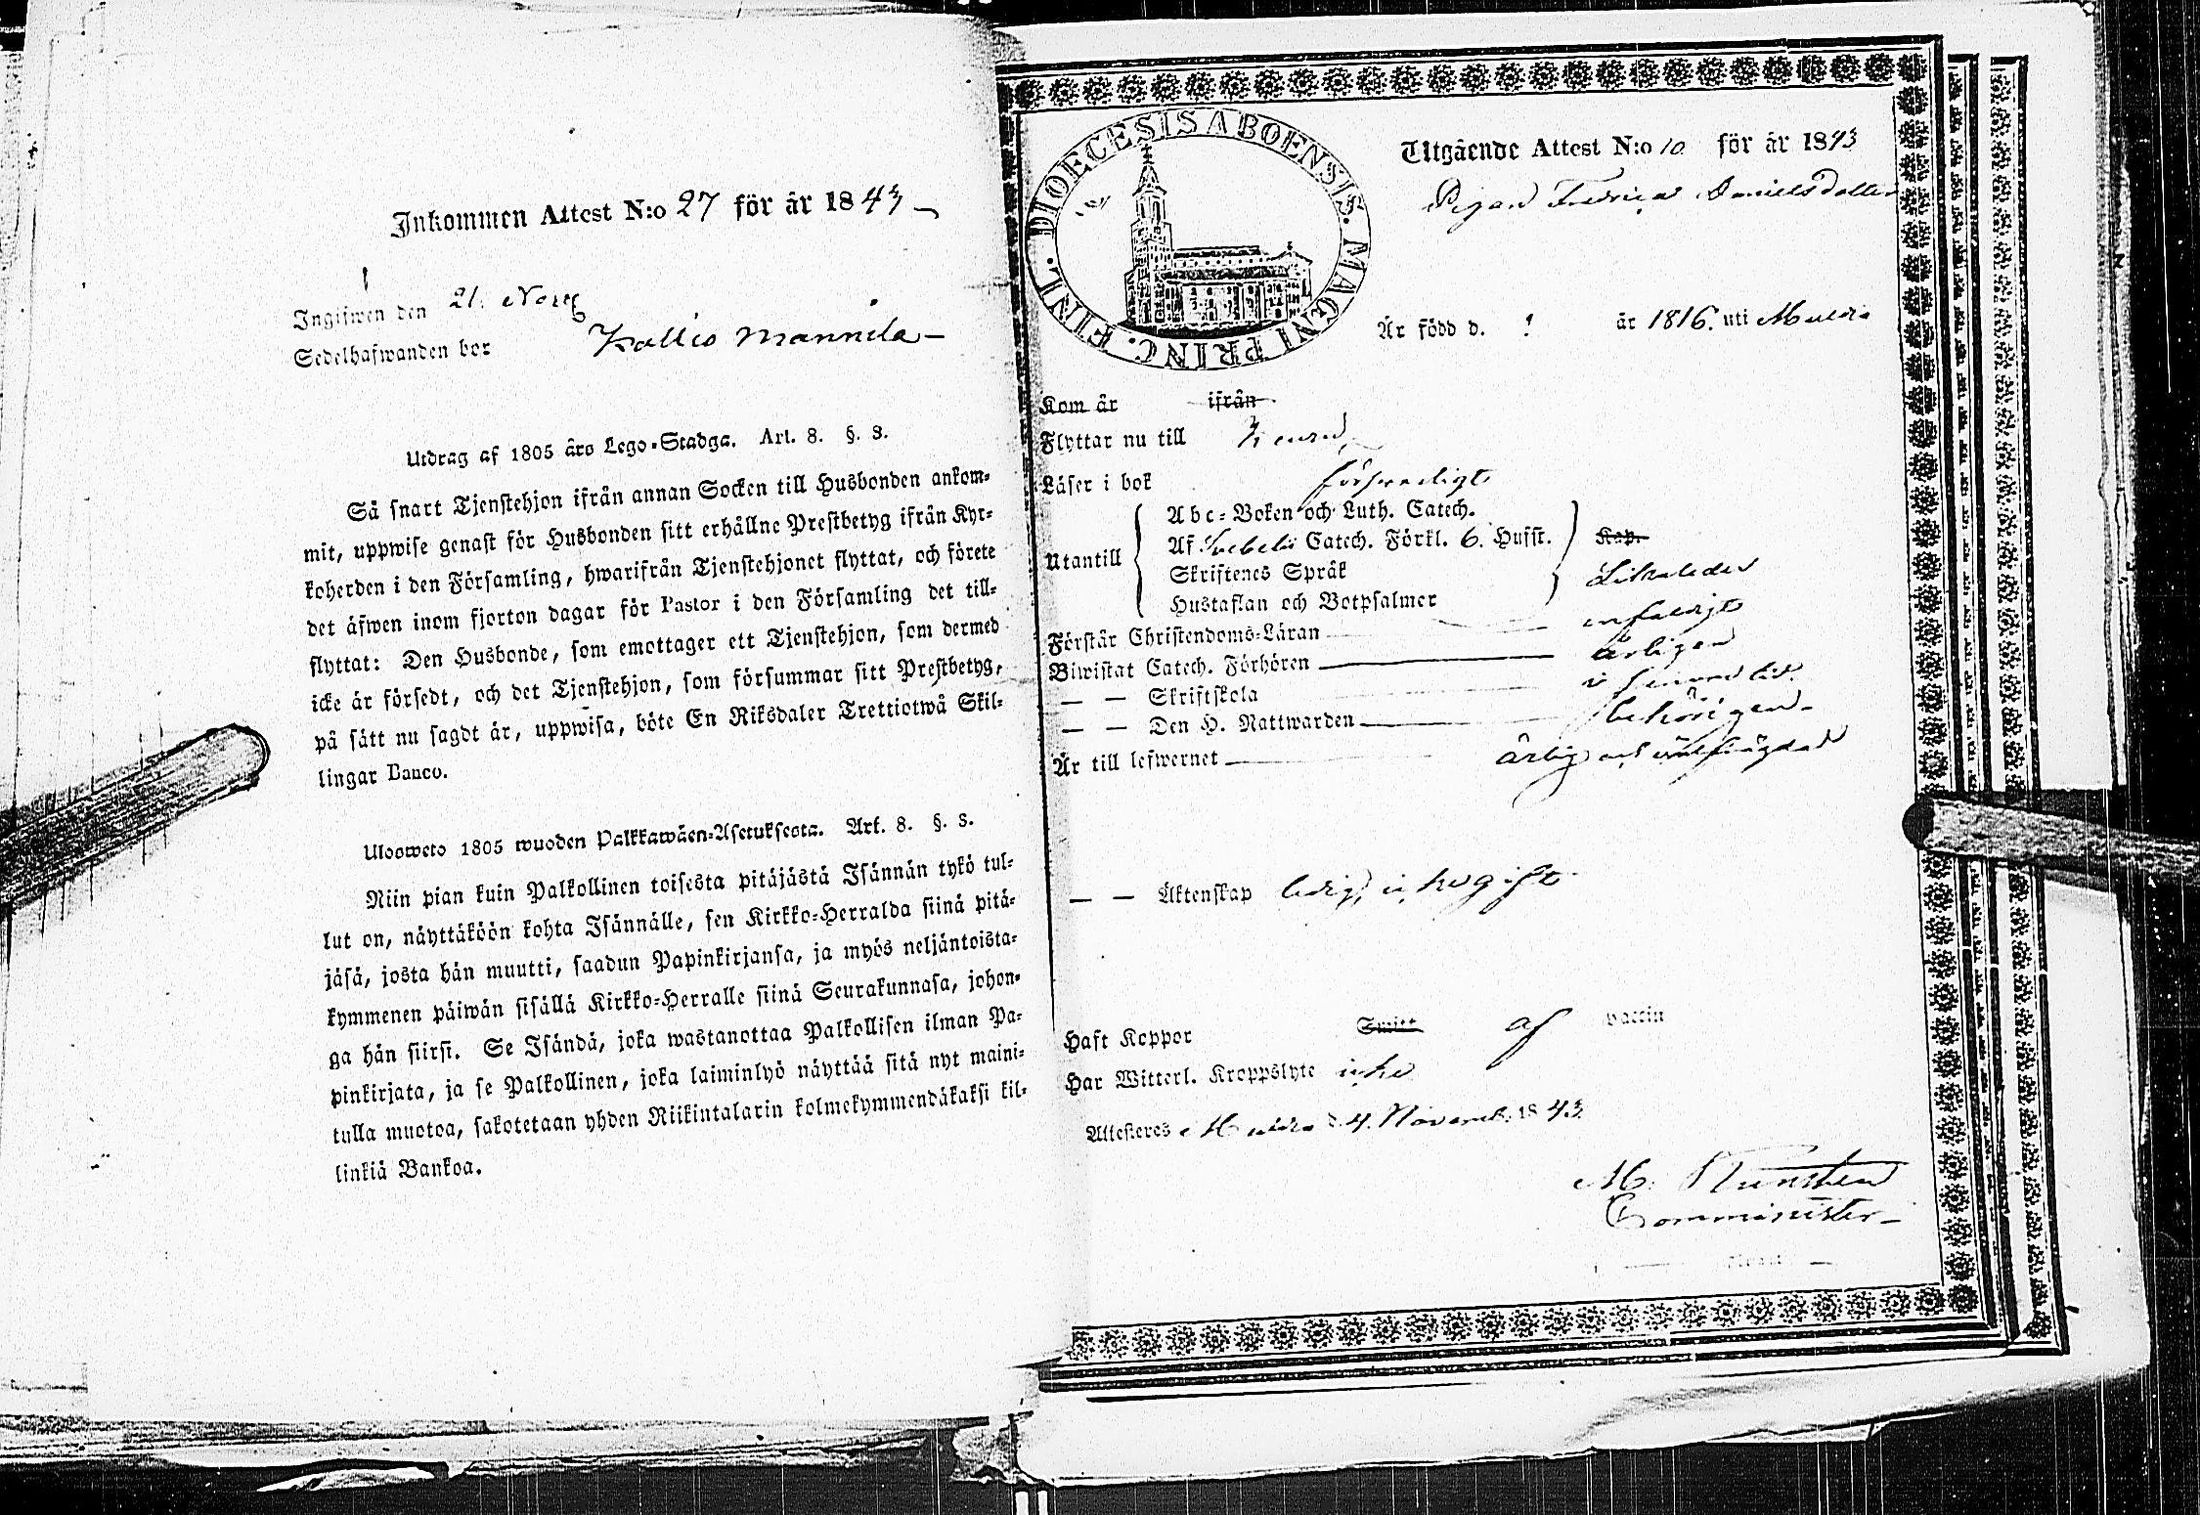 Inkommen Attest N:o 27 för år 1843
Ingifwen den 21. Nov
Sedelhafwanden bor Kallis Mannila
Utdrag af 1805 års Lego-Stadga. Art. 8. §. 3.
Så snart Tjenstehjon ifrån annan Socken till Husbonden ankom-
mit, uppwise genast för Husbonden sitt erhållne Prestbetyg ifrån Kyr-
koherden i den Församling, hwarifrån Tjenstehjonet flyttat, och förete
det äfwen inom fjorton dagar för Pastor i den Församling det till-
flyttat: Den Husbonde, som emottager ett Tjenstehjon, som dermed
icke är försedt, och det Tjenstehjon, som försummar sitt Prestbetyg,
på sätt nu sagdt är, uppwisa, böte En Riksdaler Trettiotwå Skil-
lingar Banco.
Ulosweto 1805 wuoden Palkkawäen-Asetuksesta. Art. 8. §. 3.
Niin pian kuin Palkollinen toisesta pitäjästä Isännän tykö tul-
lut on, näyttäköön kohta Isännälle, sen Kirkko-Herralda siinä pitä-
jäsä, josta hän muutti, saadun Papinkirjansa, ja myös neljäntoista-
kymmenen päiwän sisällä Kirkko-Herralle siinä Seurakunnasa, johon-
ga hän siirsi. Se Isändä, joka wastanottaa Palkollisen ilman Pa-
pinkirjata, ja se Palkollinen, joka laiminlyö näyttää sitä nyt maini-
tulla muotoa, sakotetaan yhden Riikintalarin kolmekymmendäkaksi kil-
linkiä Bankoa.
DIOECESIS ABOENSIS. MAGNI PRINC. FINL.
Utgående Attest N:o 10 för år 1843
Pigan Fredrica Danielsdotter
Är född d. ? år 1816. uti Muldia
Kom år ifrån
Flyttar nu till
Läser i bok försvarligt
Utantill
Abc-Boken och Luth. Catech.
Af Svebelii Catech. Förkl. 6. Hufst. Kap.
Skriftenes Språk Likaledes
Hustaflan och Botpsalmer
Förstår Christendoms-Läran enfaldigt
Biwistat Catech. Förhören årligen
— — Skriftskola i
— — Den H. Nattwarden behörigen
Är till lefwernet ärlig och välfrägdad
— — Äktenskap ledig, icke gift
Haft Koppor Smitt af Vaccin
Har Witterl. Kroppslyte icke
Attesteras Muldia d. 4. Novemb. 1843
M.
Comminister